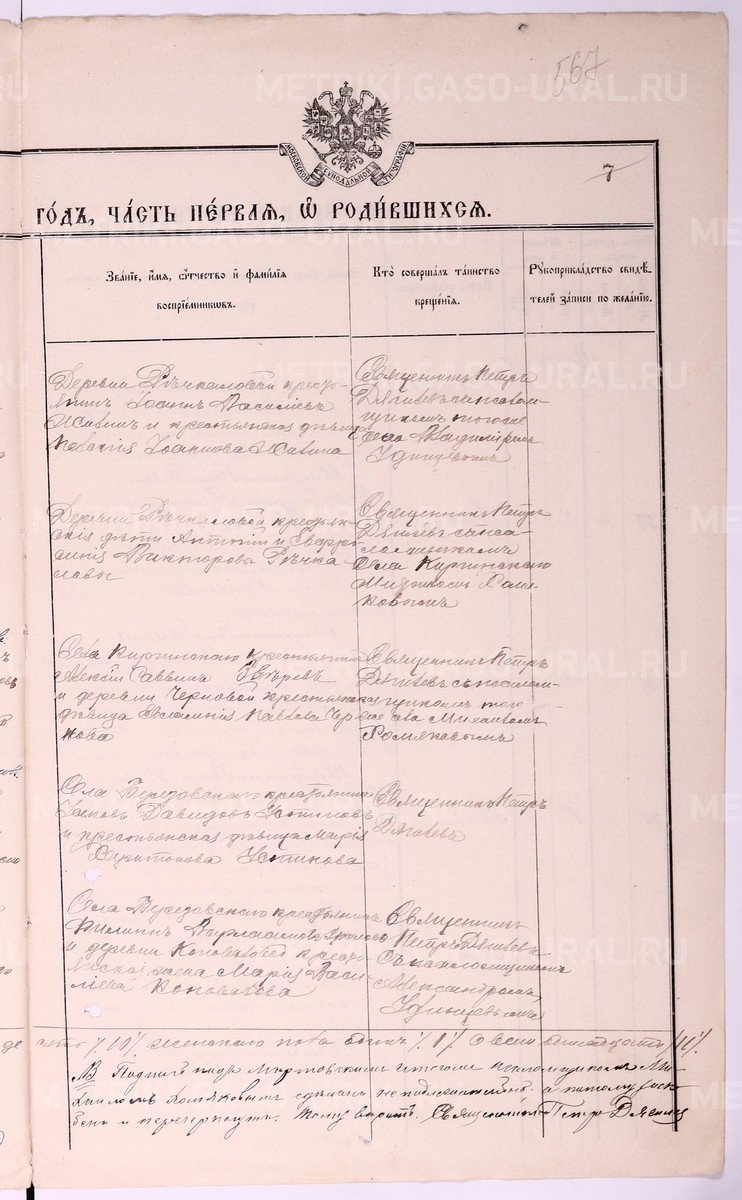 METRIKI.GASO-URAL.RU
567
МОСКОВСКОЙ СѴНОДАЛЬНОЙ ТИПОГРАФІИ
7
ГОДЪ, ЧАСТЬ ПЕРВАЯ, Ѿ РОДИВШИХСЯ.
Званіе, имя, ѻтчество и фамилія воспріемниковъ.
Кто совершалъ таинство крещенія.
Рукоприкладство свидѣтелей записи по желанію.
Деревни Рѣчкаловой крестьянинъ Іоаннъ Василіевъ
и крестьянская дѣвица
Іоаннова
Священникъ Петръ
Дягилевъ съ псалом-
щикомъ того же
села Владиміромъ
Удинцевымъ
Деревни Рѣчкаловой крестьян-
скія дѣти Антоній и Евфро-
синія Викторова Рѣчка-
ловы
Священникъ Петръ
Дягилевъ съ пса-
ломщикомъ
села Киргинскаго
Михаиломъ Хомя-
ковымъ
Села Киргинскаго крестьянинъ
Алексій Саввинъ Звѣревъ
и деревни Черновой крестьянская
дѣвица Павлова Чер-
нова
Священникъ Петръ
Дягилевъ съ псалом-
щикомъ того
же села Михаиломъ
Хомяковымъ
Села Березовскаго крестьянинъ
Іаковъ Давидовъ Устиновъ
и крестьянская дѣвица Марія
Харитонова Устинова
Священникъ Петръ
Дягилевъ
Села Березовскаго крестьянинъ
Филиппъ
и деревни Коноваловой кресть-
янская жена Марія Васи-
ліева Коновалова
Священникъ
Петръ Дягилевъ
съ псаломщикомъ
Александромъ
Удинцевымъ
10 женскаго пола одинъ 1 а всего одиннадцать 11
NB Подпись подъ мартовскимъ итогомъ псаломщикомъ Ми-
хаиломъ Хомяковымъ сдѣлана а потому
и перечеркнута. Тому вѣритъ. Священникъ Петръ Дягилевъ